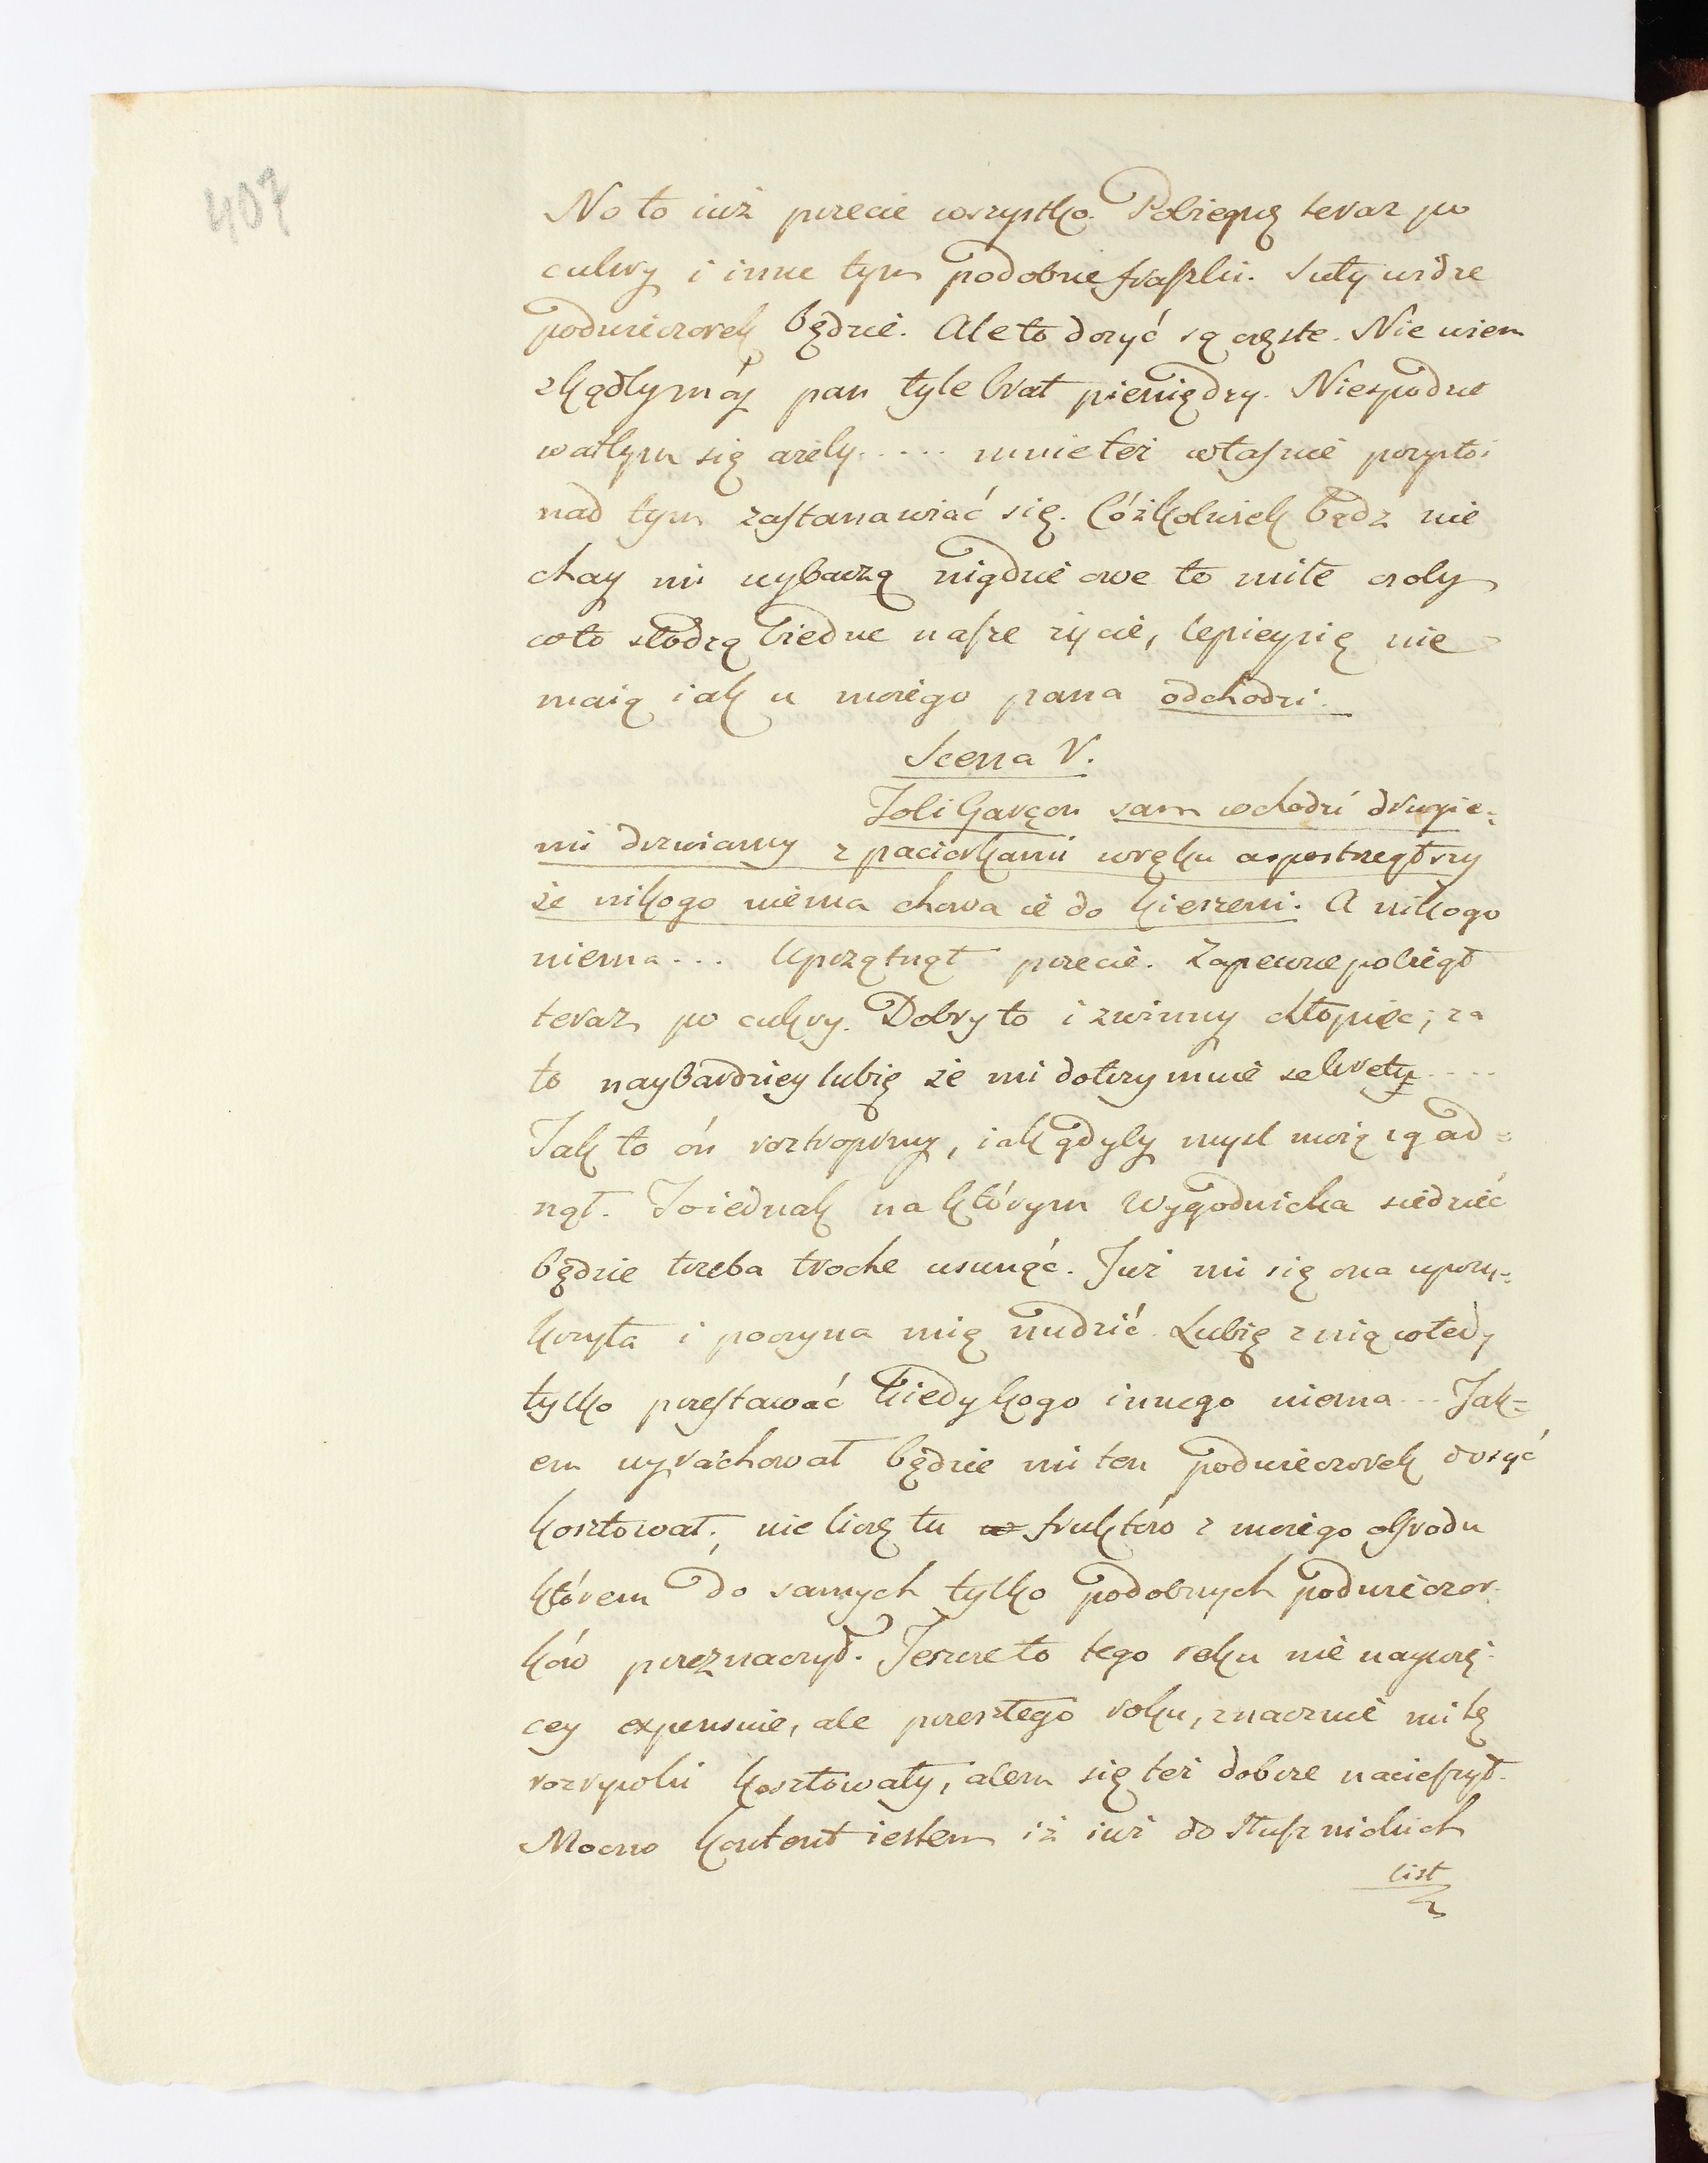 407
No to iuż przecie wszystko. Pobiegnę teraz po
cukry i inne tym podobne fraszki. Suty widze
podwieczorek będzie. Ale to dosyć są częste. Nie wiem
zkądby móy pan tyle brał pieniędzy. Niespodzie
wałbym się ażeby..... mnie też właśnie przysto
nad tym zastanawiać się. Cóżkolwiek bądz nie
chay mi wybaczą nigdzie owe to miłe osoby
co to słodzą biedne nasze życie, lepiey się nie
maią iak u moiego pana odchodzi.
Scena V.
Joli Garçon sam wchodzi drugie=
mi drzwiamy z paciorkami wręku a spostrzegłszy
że nikogo niema chowa ie do kieszeni. A nikogo
niema... Uprzątnął przecie. Zapewne pobiegł
teraz po cukry. Dobry to i zwinny chłopiec; za
to naybardziey lubię że mi dotrzymuie sekrety....
Jak to ón roztropny, iak gdyby mysl moię zgad=
nął. To iednak na którym Wygodnicka siedzieć
będzie trzeba troche usunąć. Już mi się ona uprzy=
krzyła i poczyna mię nudzić. Lubię z nią wtedy
tylko przestawać kiedy kogo innego niema... Jak=
em wyrachował będzie mi ten podwieczorek dosyć
kosztował; nie liczę tu fruktów z moiego ogrodu
którem do samych tylko podobnych podwieczor=
ków przeznaczył. Jeszcze to tego roku nie naywię=
cey expensuie, ale przeszłego roku, znacznie mi tę
rozrywki kosztowały, alem się też dobrze nacieszył.
Mocno kontent iestem iż iuż do Słusznickich
list